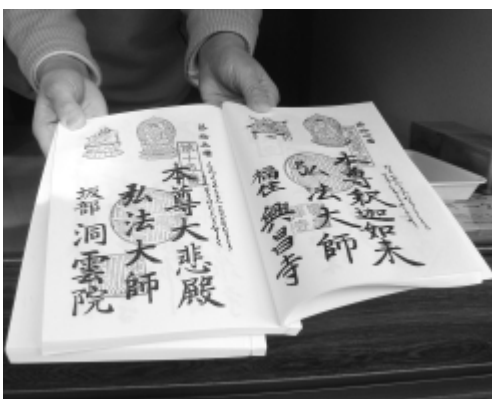 本尊釈迦如来
弘法大師
福住 興昌寺
本尊大悲殿
弘法大師
坂部 洞雲院